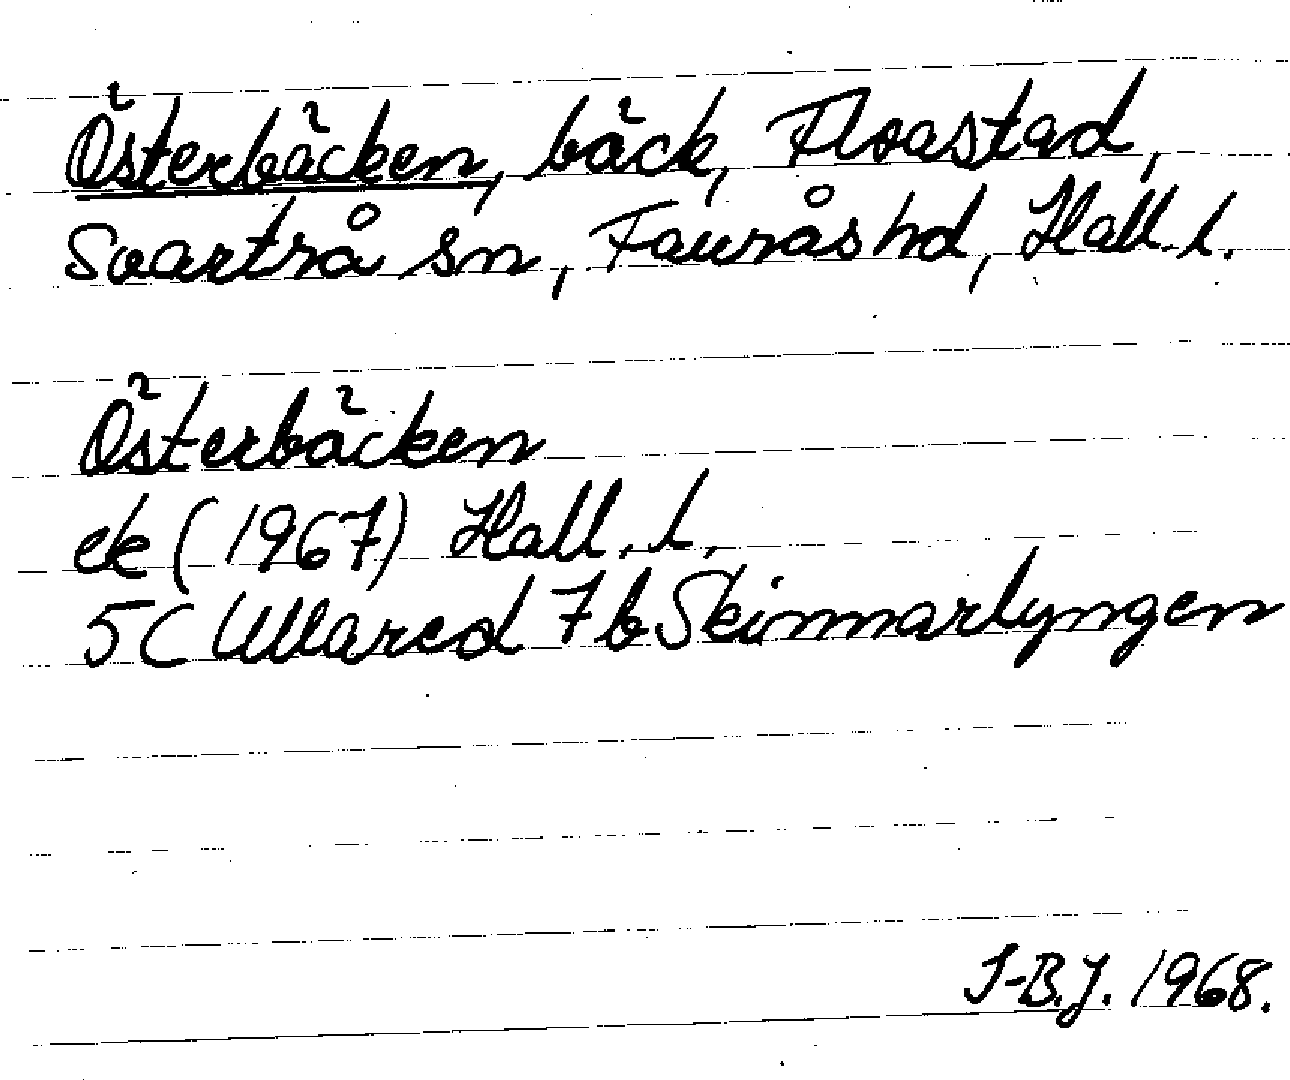 Österbäcken, bäck, Floastad,
Svartrå sn, Faurås hd, Hall. l.
Österbäcken
ek (1967) Hall. l.
5C Ullared 7b Skinnarlyngen
I-B.J. 1968.